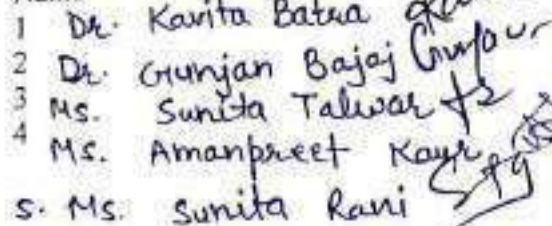 1 Dr. Kavita Batra
2 Dr. Gunjan Bajaj
3 Ms. Sunita Talwar
4 Ms. Amanpreet Kaur
5. Ms. Sunita Rani